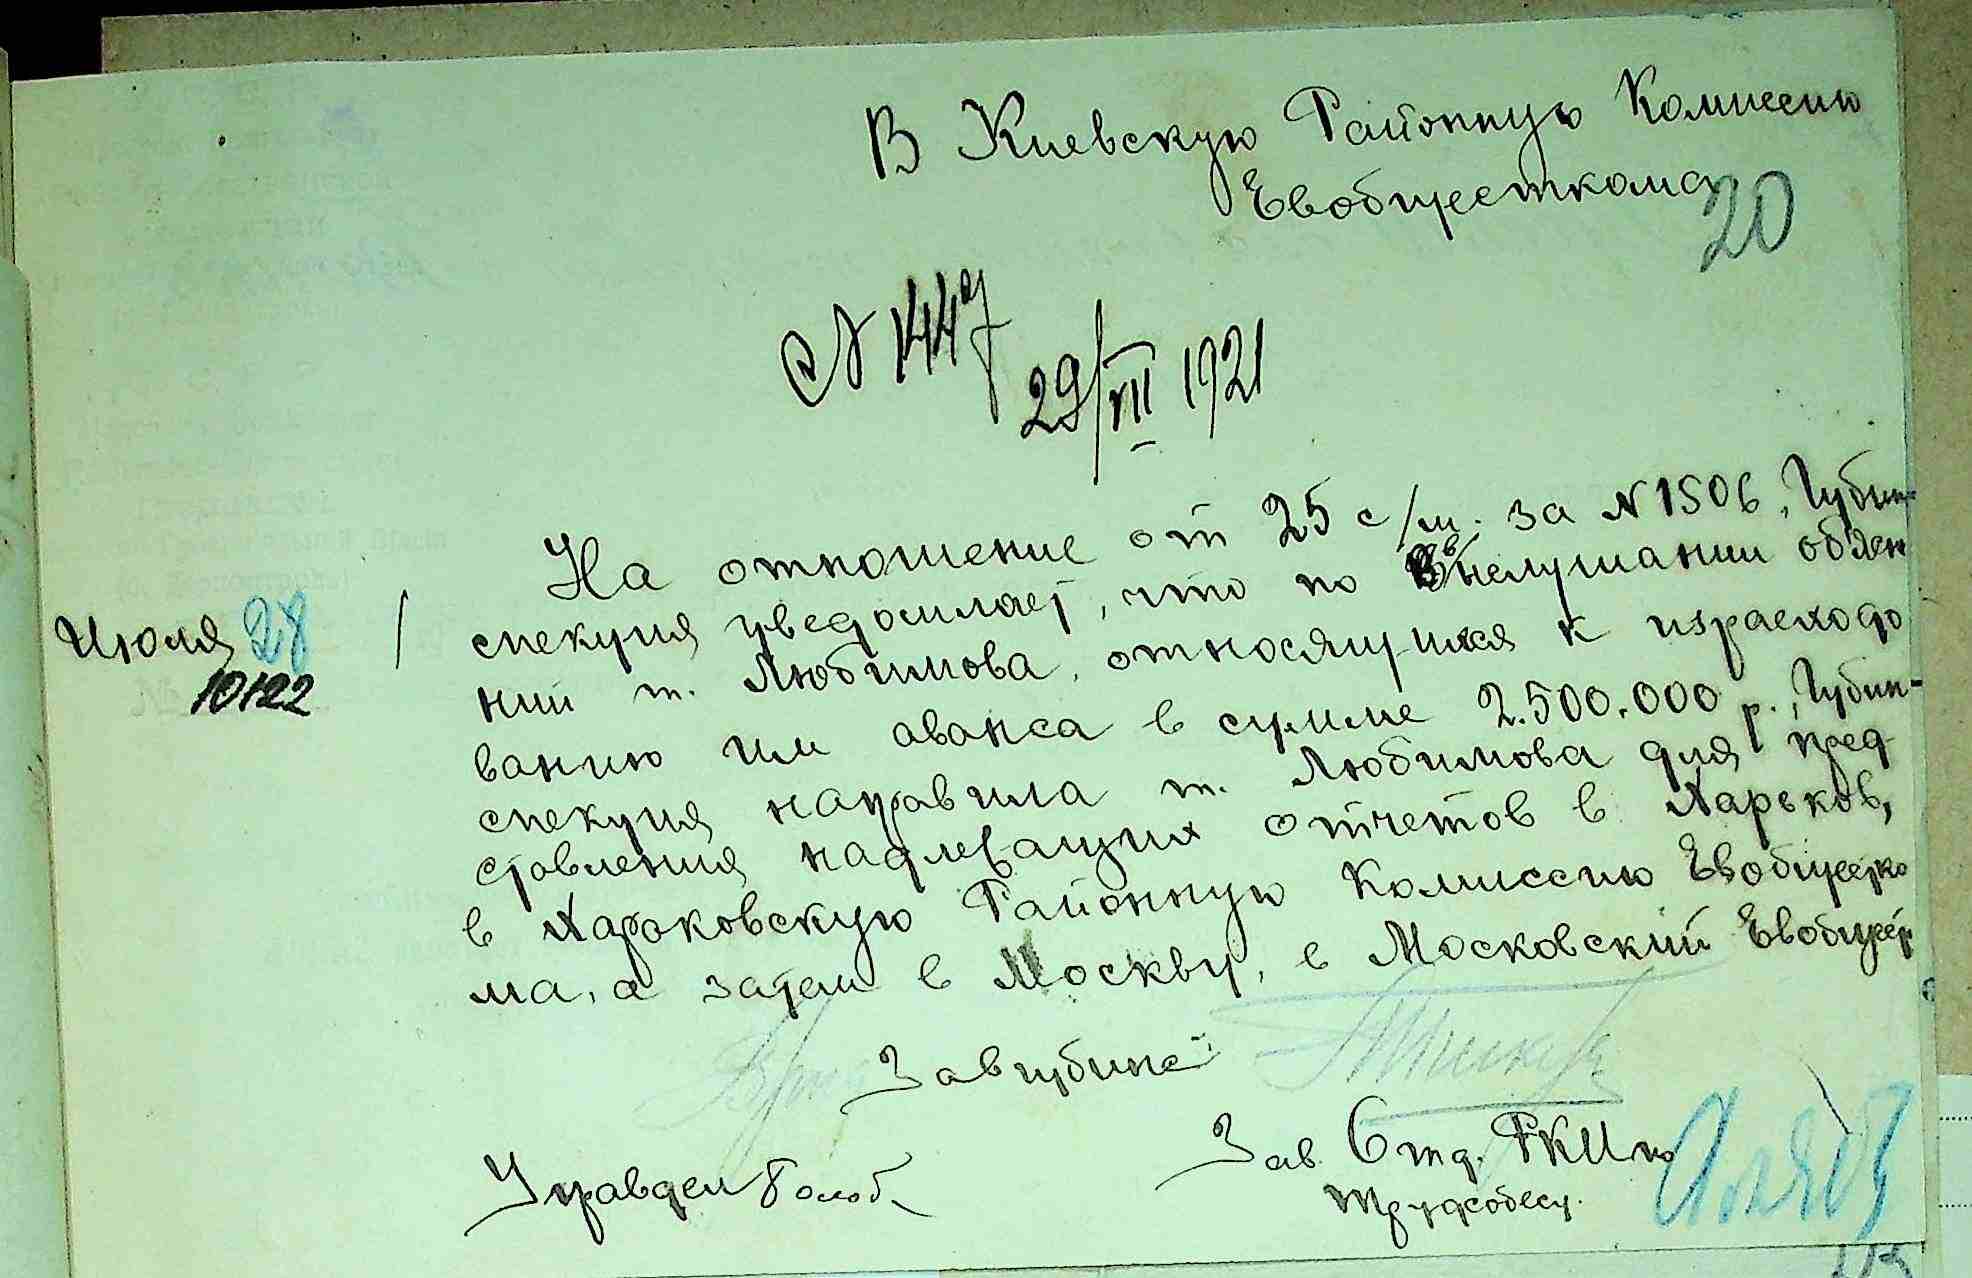 В Киевскую Районную Комиссию
Евобщесткома
20
№ 1447
29/VII 1921
На отношение от 25 с/м. за № 1506, Губин-
спекция уведомляет, что по выслушании об'ясне
Июля 28
10122
ний т. Любимова, относящихся к израсходо
ванию им аванса в сумме 2.500.000 р., Губин-
спекция направила т. Любимова для пред
ставления надлежащих отчетов в Харьков,
в Харьковскую Районную Комиссию Евобщестко
ма, а затем в Москву, в Московский Евобщест
Завгубинс
Зав. Отд. РКИ по
Трудсобесу.
Управдел Голоб